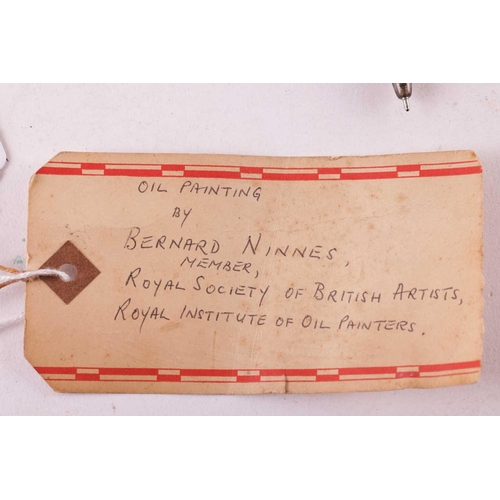 OIL PAINTING
BY
BERNARD NINNES,
MEMBER,
ROYAL SOCIETY OF BRITISH ARTISTS,
ROYAL INSTITUTE OF OIL PAINTERS.